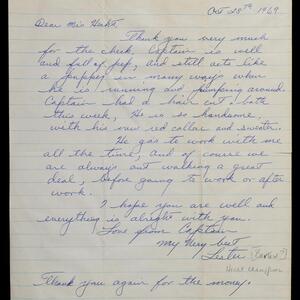 Oct 28th 1969.
Dear Mis Hecht.
Thank you very much
for the check, Captain is well
and full of pep, and still acts like
a puppy in many ways when
he is running and jumping around.
Captain had a hair cut & bath
this week, He is so handsome
with his new red collar and sweater.
He gos to work with me
all the time, and of course we
are always out walking a great
deal, before going to work or after
work.
I hope you are well and
everything is alright with you.
Love from Captain
My Very best
Lester
Thank you again for the money.